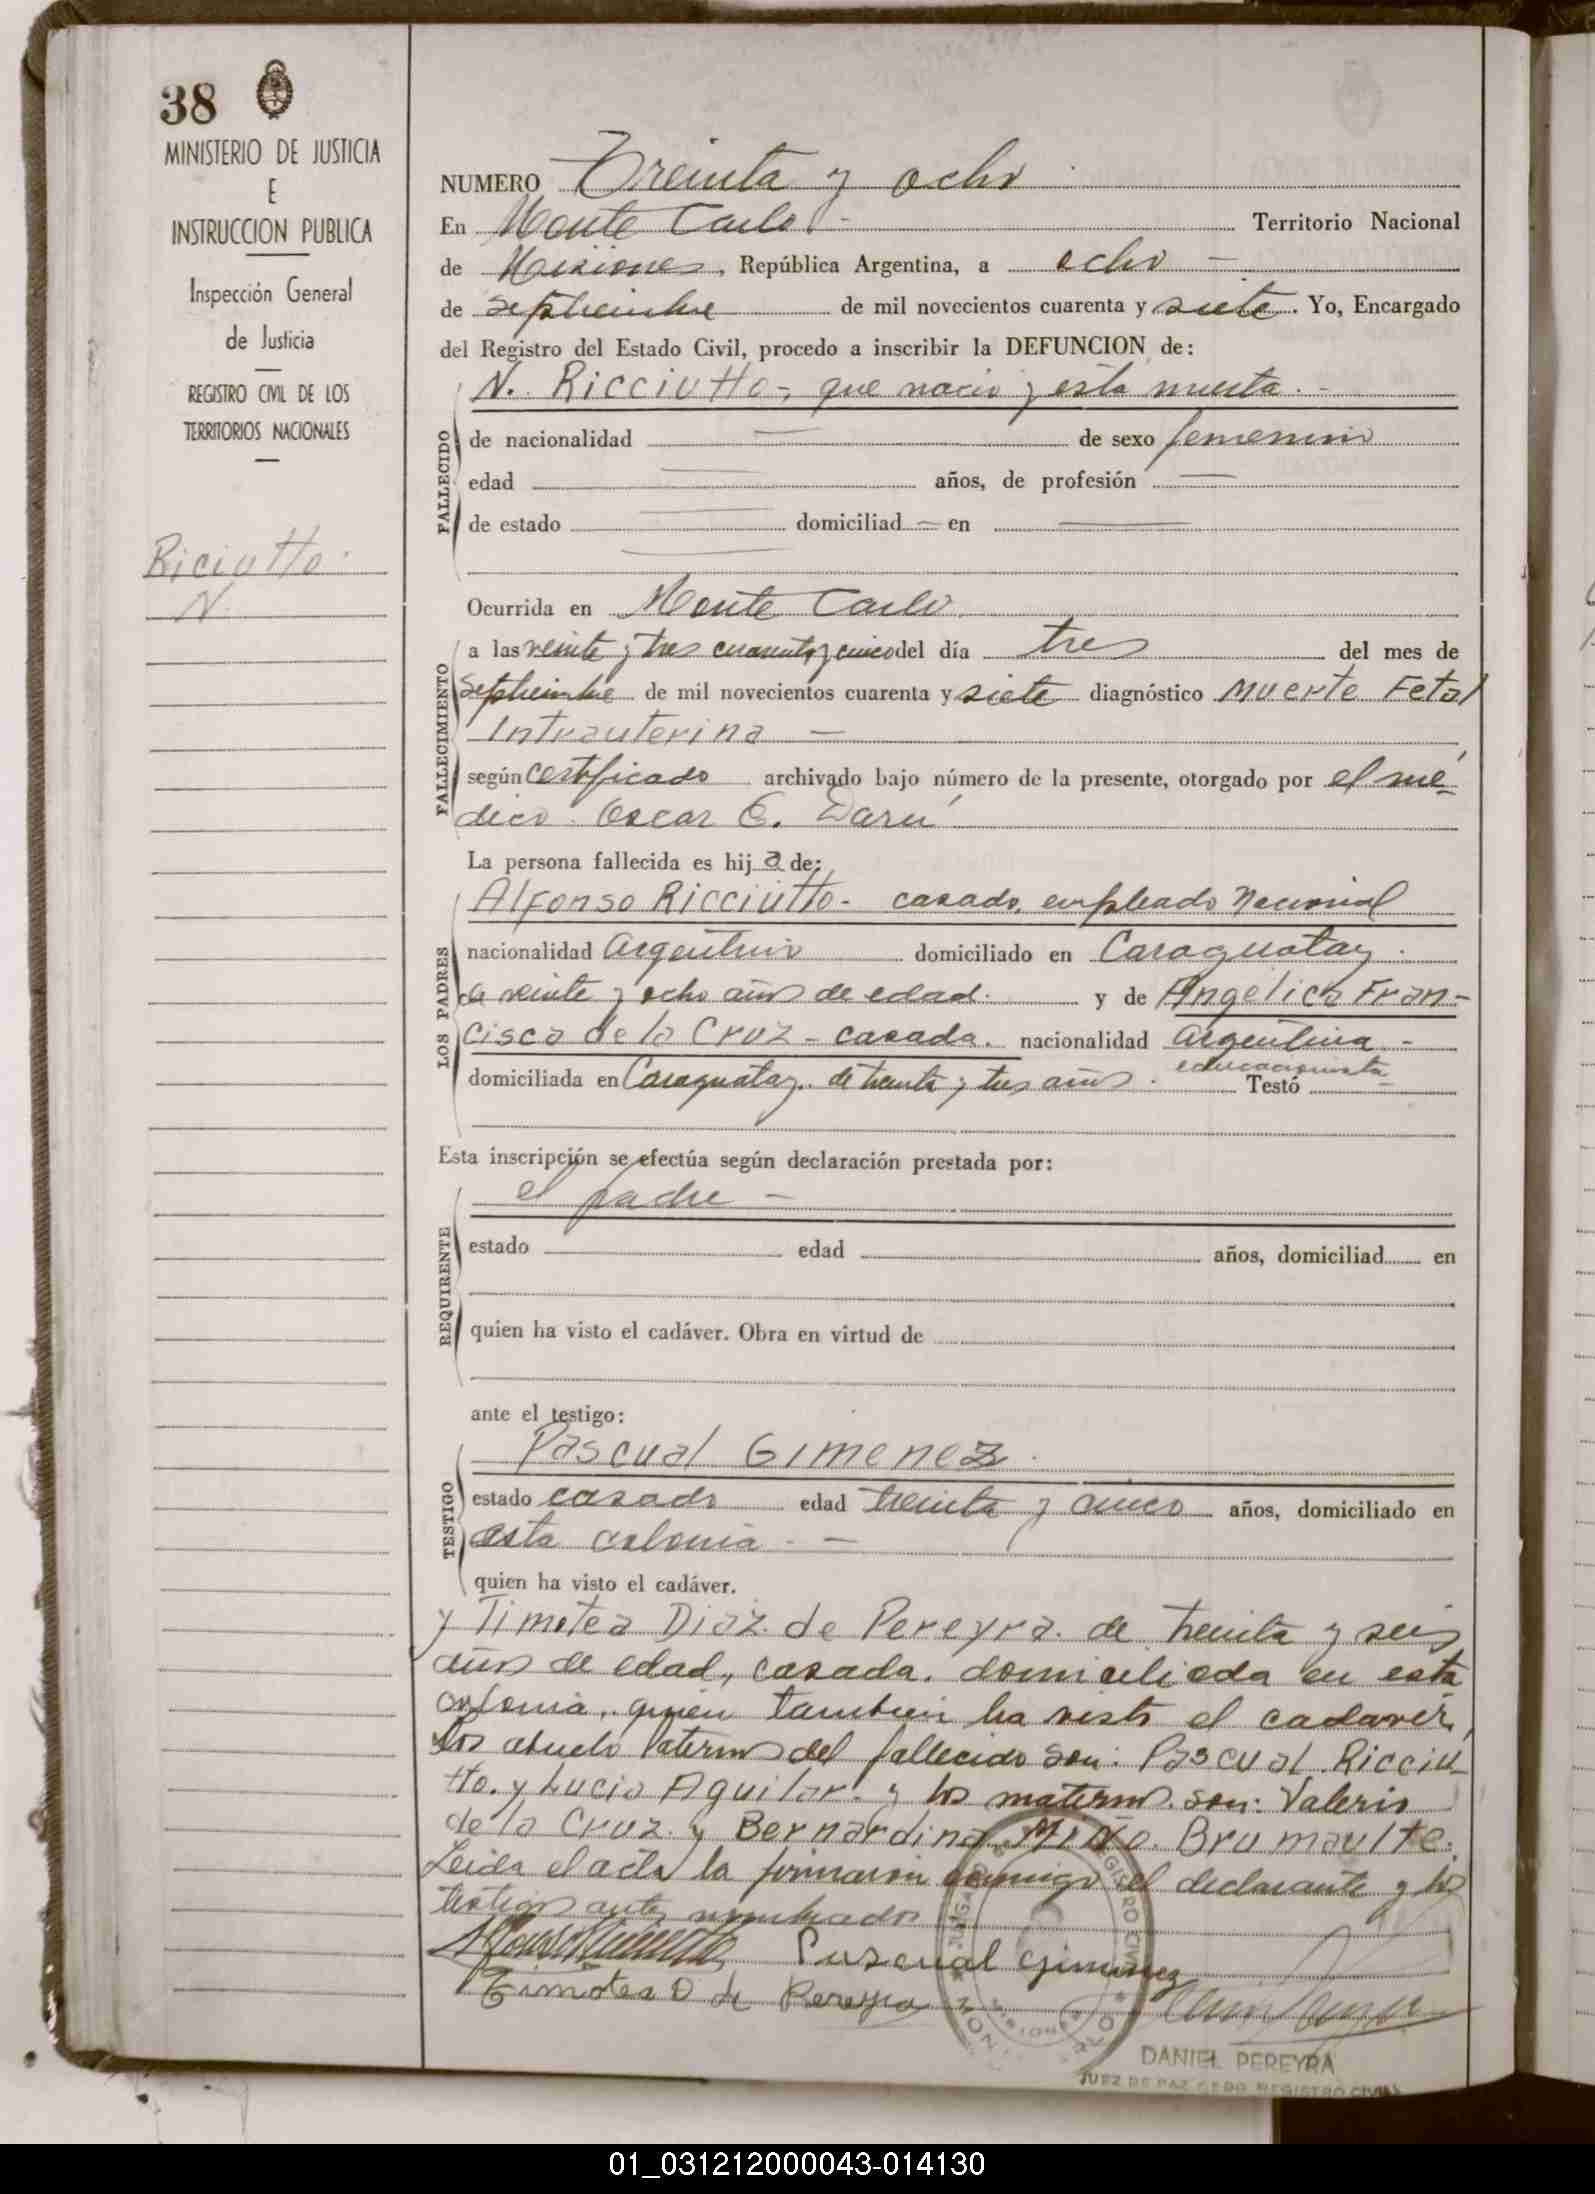 38
MINISTERIO DE JUSTICIA
E
INSTRUCCION PUBLICA
Inspección General
de Justicia
REGISTRO CIVIL DE LOS
TERRITORIOS NACIONALES
Riciutto
N.
NUMERO Treinta y ocho
En Monte Carlo - Territorio Nacional
de Misiones, República Argentina, a ocho -
de septiembre de mil novecientos cuarenta y siete. Yo, Encargado
del Registro del Estado Civil, procedo a inscribir la DEFUNCION de:
N. Ricciutto-, que nació y está muerta. -
FALLECIDO
de nacionalidad — de sexo femenino
edad — años, de profesión —
de estado — domiciliad — en —
Ocurrida en Monte Carlo
FALLECIMIENTO
a las veinte y tres cuarenta y cinco del día tres del mes de
septiembre de mil novecientos cuarenta y siete diagnóstico Muerte Fetal
Intrauterina —
según certificado archivado bajo número de la presente, otorgado por el mé-
dico Oscar C. Darú
La persona fallecida es hija de:
LOS PADRES
Alfonso Ricciutto- casado, empleado Nacional
nacionalidad argentino domiciliado en Caraguatay.
de veinte y ocho años de edad. y de Angélica Fran-
cisca de la Cruz - casada. nacionalidad argentina -
educacionista
domiciliada en Caraguatay. de treinta y tres años. Testó
Esta inscripción se efectúa según declaración prestada por:
REQUIRENTE
el padre -
estado edad años, domiciliad en
quien ha visto el cadáver. Obra en virtud de
ante el testigo:
TESTIGO
Pascual Gimenez.
estado casado edad treinta y cinco años, domiciliado en
esta colonia - —
quien ha visto el cadáver.
y Timotea Diaz de Pereyra. de treinta y seis
años de edad, casada. domiciliada en esta
colonia, quien tambien ha visto el cadaver,
Los abuelo Paternos del fallecido son: Pascual Ricciu-
tto. y Lucia Aguilar. y los maternos son: Valerio
de la Cruz y Bernardina Miño. Brumaulte.
Leida el acta la firmaron conmigo el declarante y los
testigos antes nombrados
Pascual Gimenez
Timotea D de Pereyra
REGISTRO CIVIL
MISIONES
DANIEL PEREYRA
JUEZ DE PAZ REGISTRO CIVIL
01_031212000043-014130